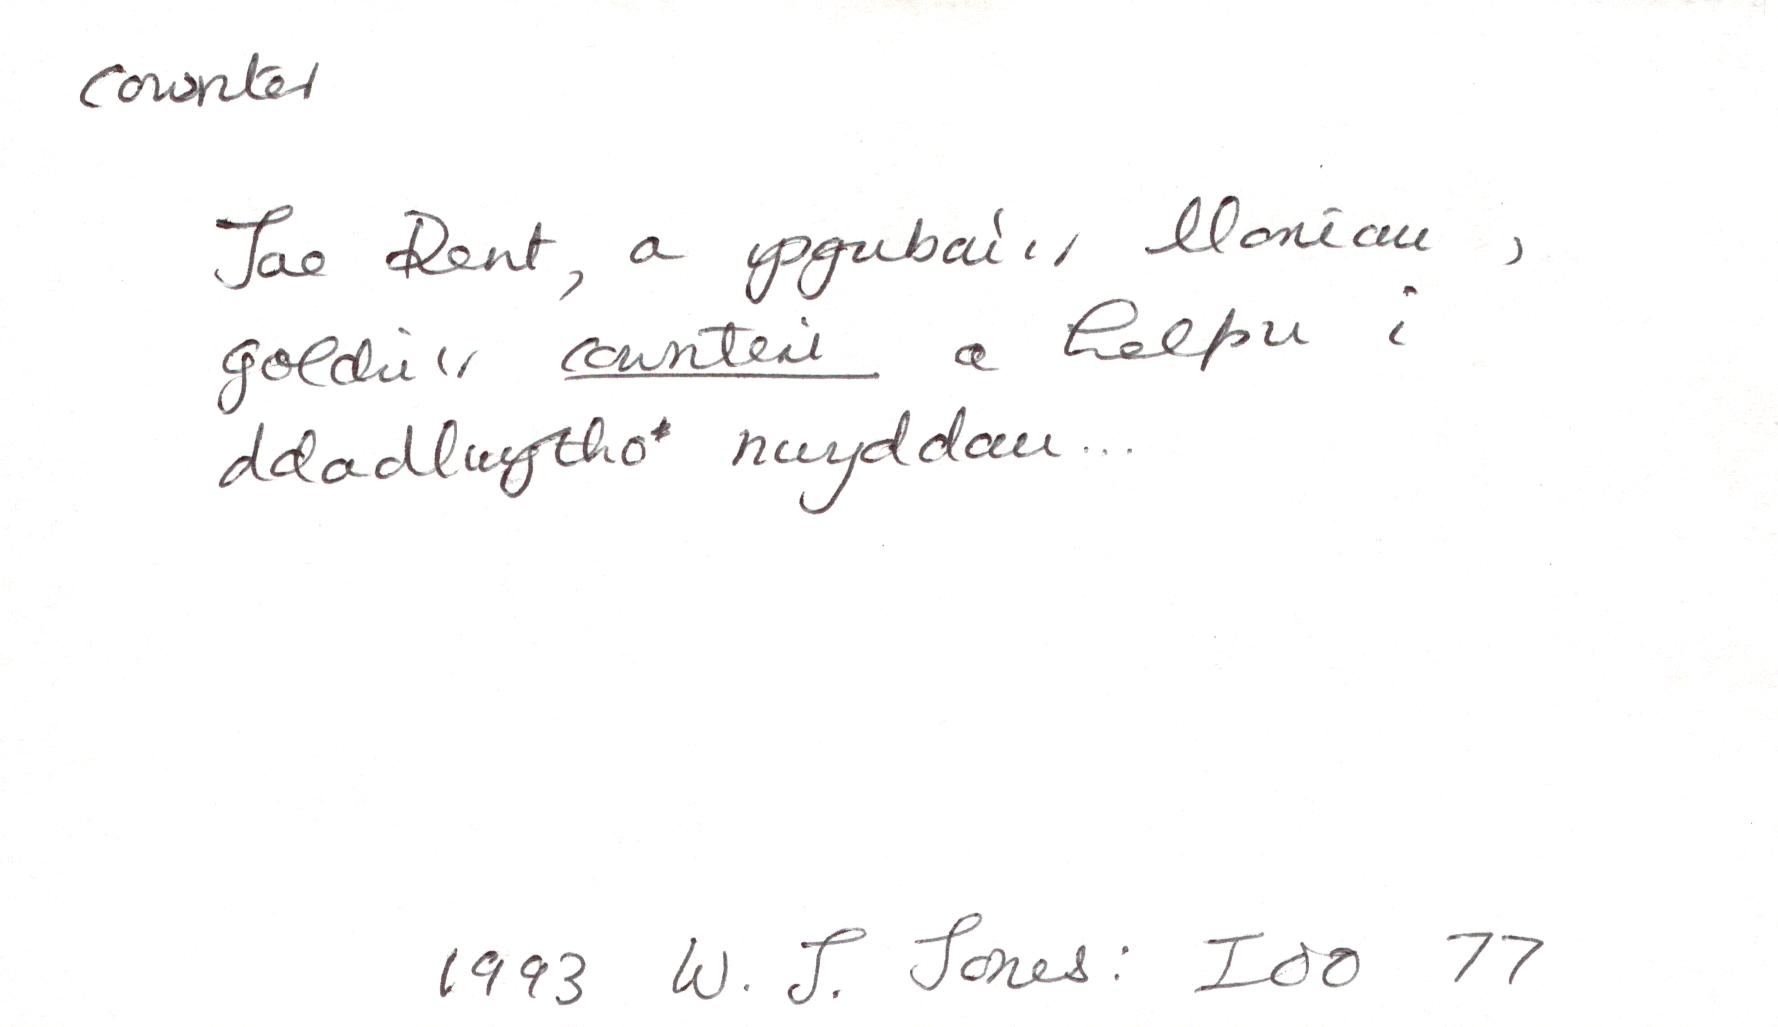 cownter
Jac Dent, a ysgubai'r lloriau,
golchi'r counteri a helpu i
ddadlwytho* nwyddau...
1993 W. J. Jones: Ioo 77